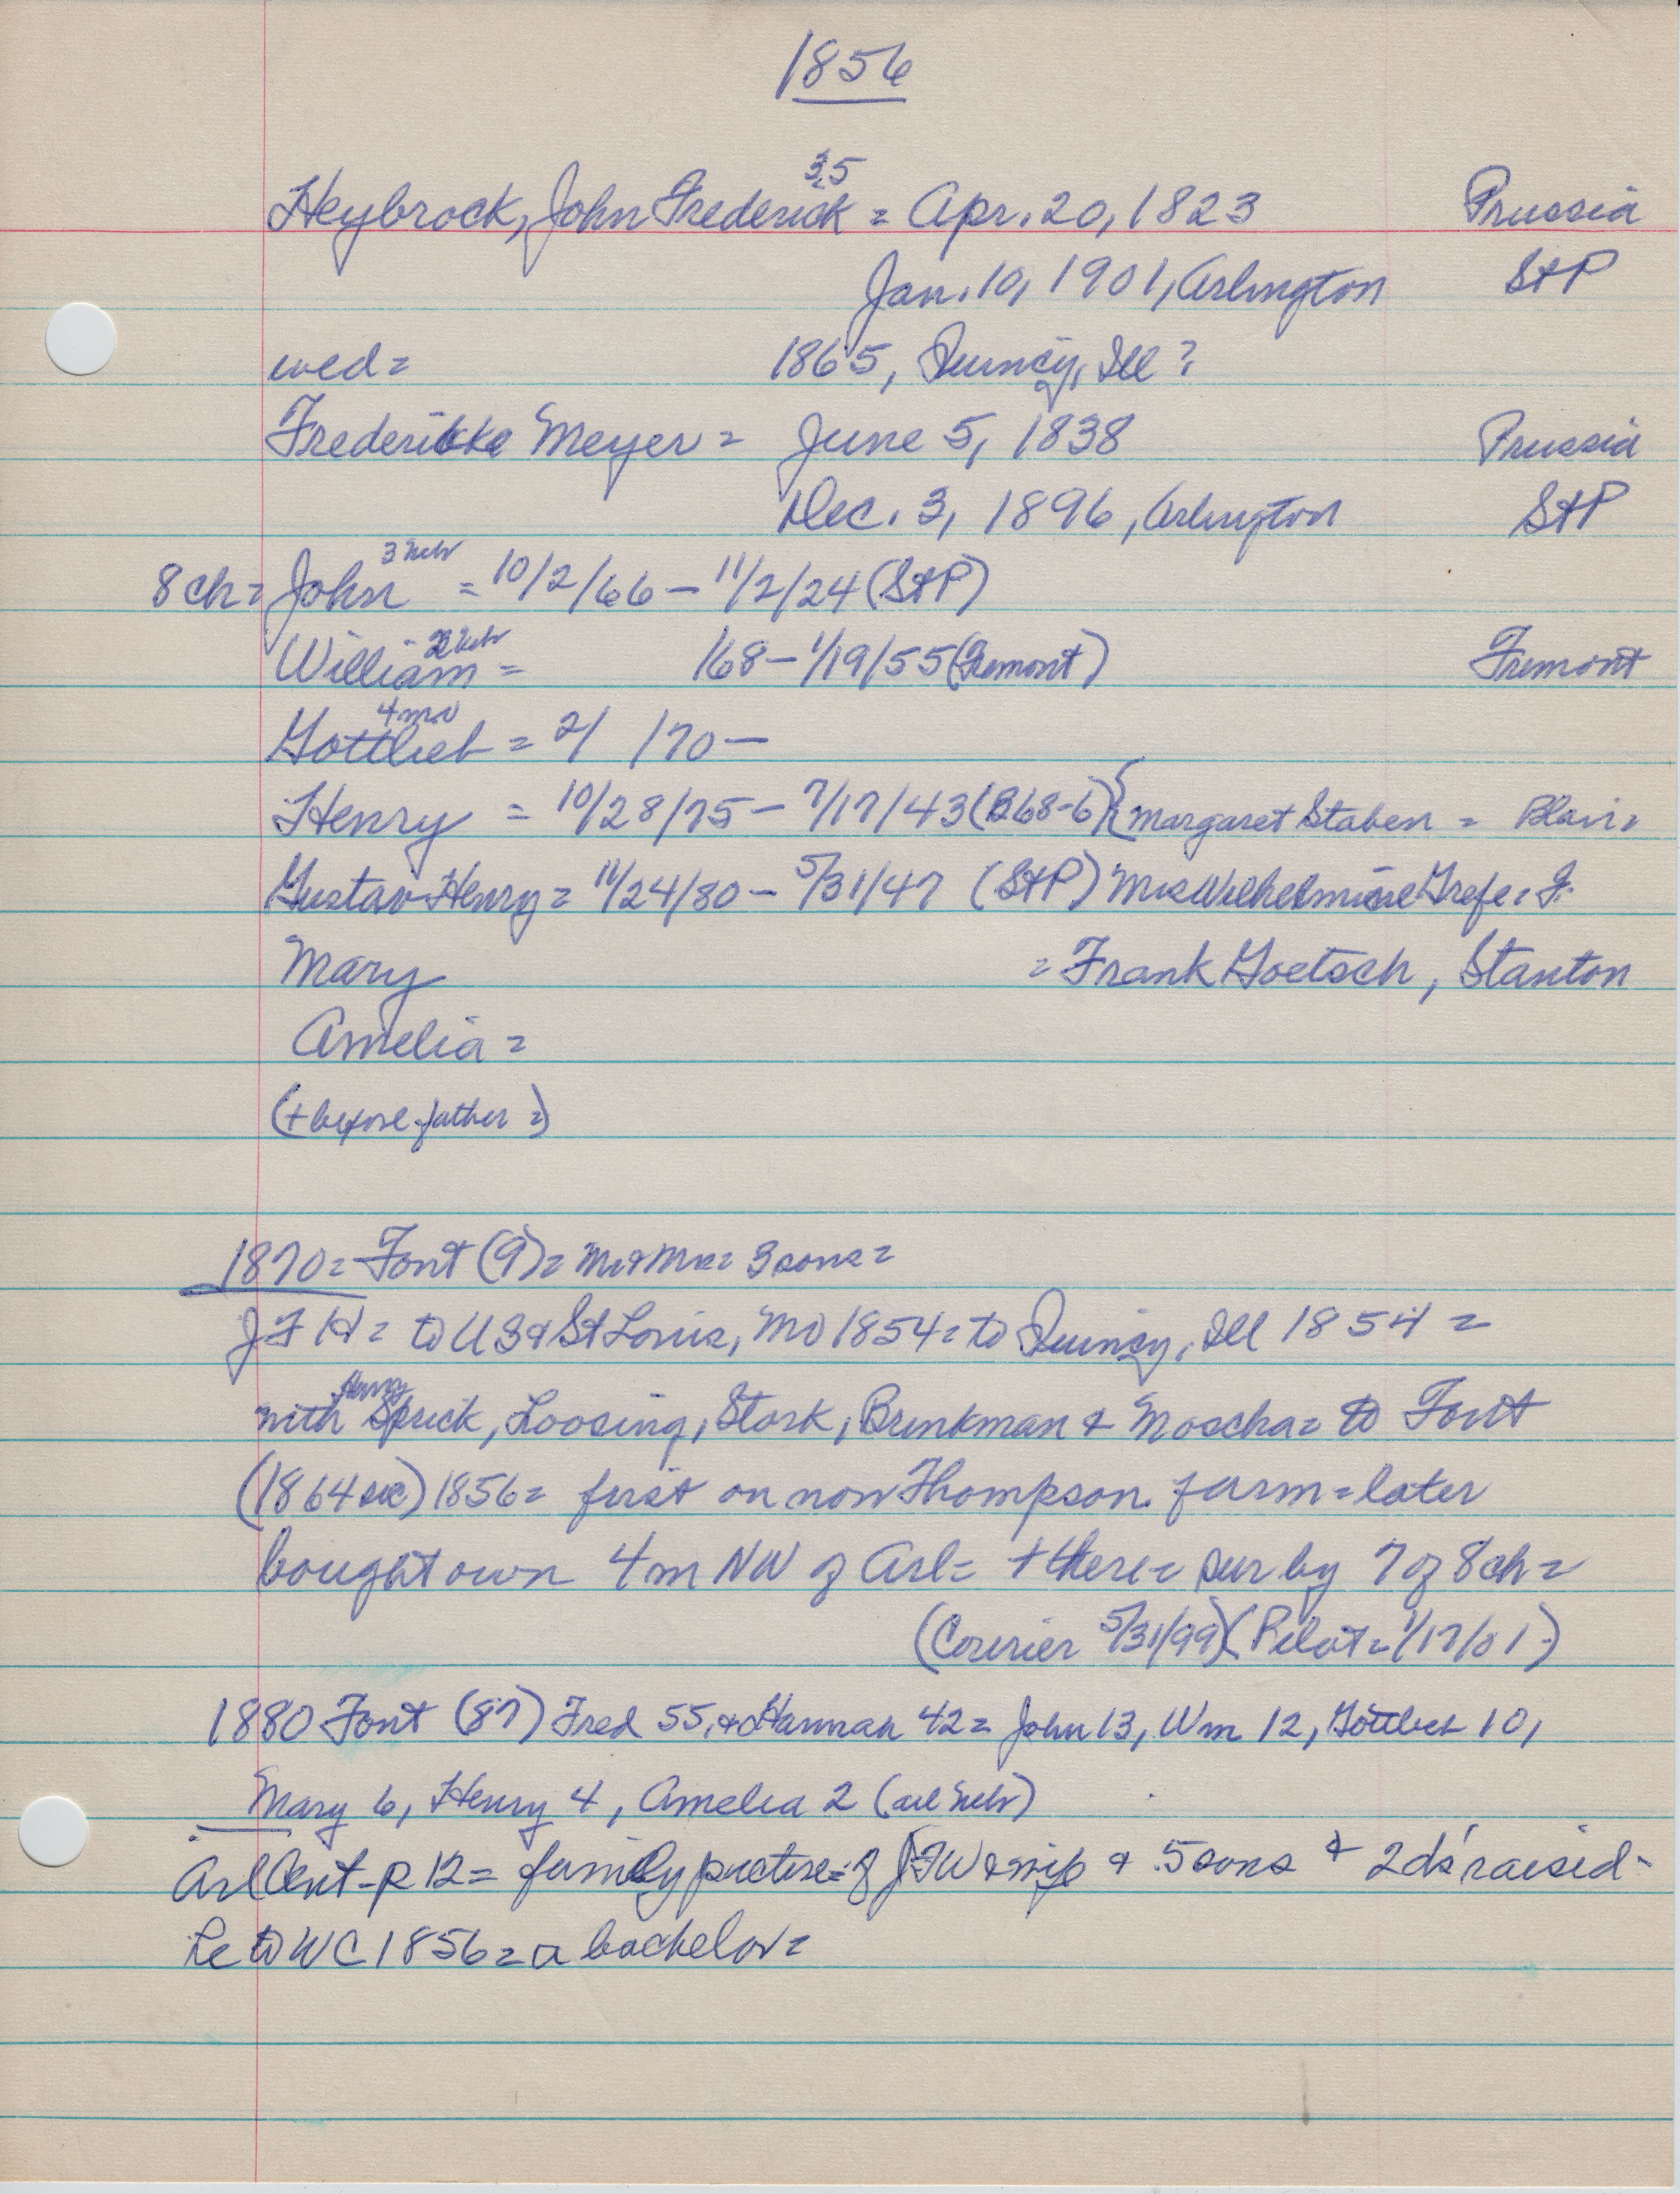 1856
35
Heybrock, John Frederick = Apr. 20, 1823 Prussia
Jan. 10, 1901, Arlington StP
wed = 1865, Quincy, Ill ?
Frederikke Meyer = June 5, 1838 Prussia
Dec. 3, 1896, Arlington StP
3 Neb
8 ch = John = 10/2/66 - 11/2/24 (StP)
2 Neb
William = /68 - 1/19/55 (Fremont) Fremont
4 mo
Gottlieb = 2/ /70 -
Henry = 10/28/75 - 7/17/43 (B68-6) { Margaret Staben = Blair =
Gustav Henry = 11/24/80 - 5/31/47 (StP) Mrs Wilhelmine Grefe = J.
Mary = Frank Goetsch, Stanton
Amelia =
(+ before father =)
1870 = Font (9) = Mr & Mrs = 3 sons =
JFH = to US & St Louis, Mo 1854 = to Quincy, Ill 1854 =
Henry
with Sprick, Loosing, Stork, Brinkman & Moscha = to Font
(1864 sic) 1856 = first on now Thompson farm = later
bought own 4 m NW of Arl = + there = sur by 7 of 8 ch =
(Courier 5/31/99) (Pilot = 1/17/01.)
1880 Font (87) Fred 55, & Hannah 42 = John 13, Wm 12, Gottlieb 10,
Mary 6, Henry 4, Amelia 2 (all Neb)
Arl Cent - p 12 = family picture = of JFW & wife & 5 sons & 2 ds raised -
he to WC 1856 = a bachelor =